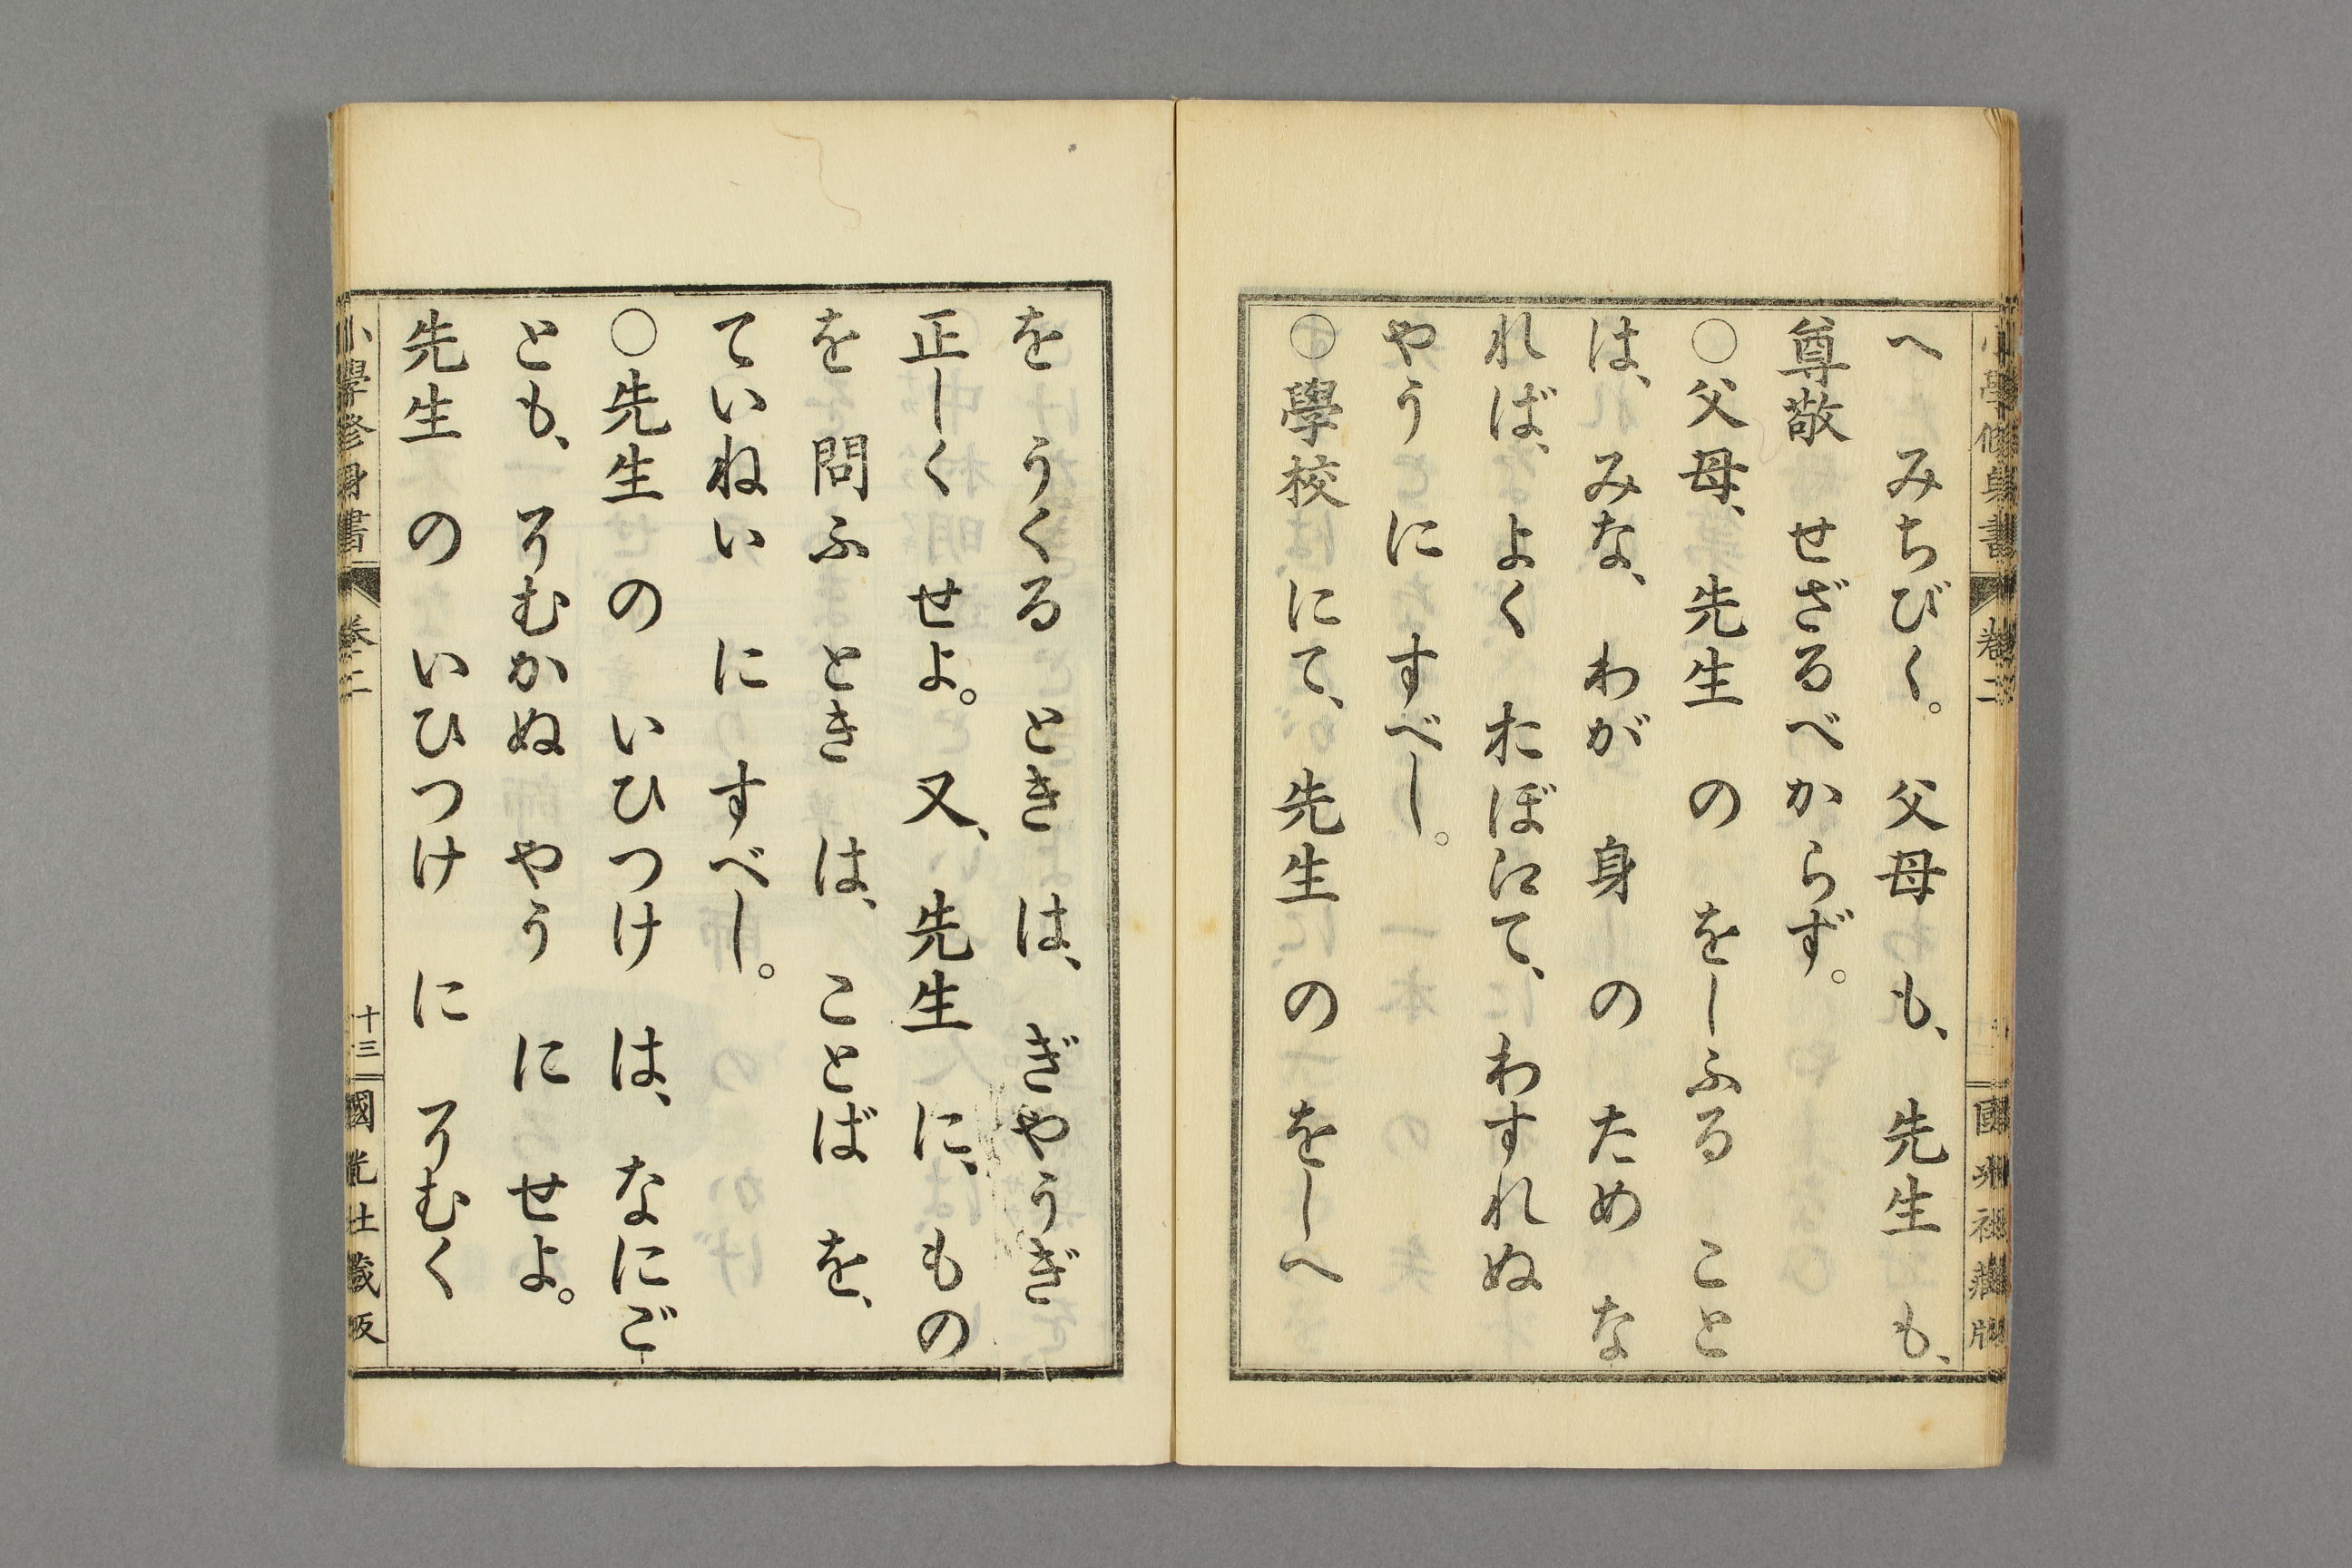 へ みちびく。 父母 も、 先生 も、
尊敬 せざるべからず。
○父母、 先生 の をしふる こと
は、 みな、 わが 身 の ため な
れば、 よく おぼえて、 わすれぬ
やう に すべし。
○學校 にて、 先生 の をしへ
を うくる とき は、 ぎやうぎ
正しく せよ。 又、 先生 に、 もの
を 問ふ とき は、 ことば を、
ていねい に すべし。
○先生 の いひつけ は、 なにご
とも、 そむかぬ やう に せよ。
先生 の いひつけ に そむく
小學修身書 卷二 十三 國光社藏版